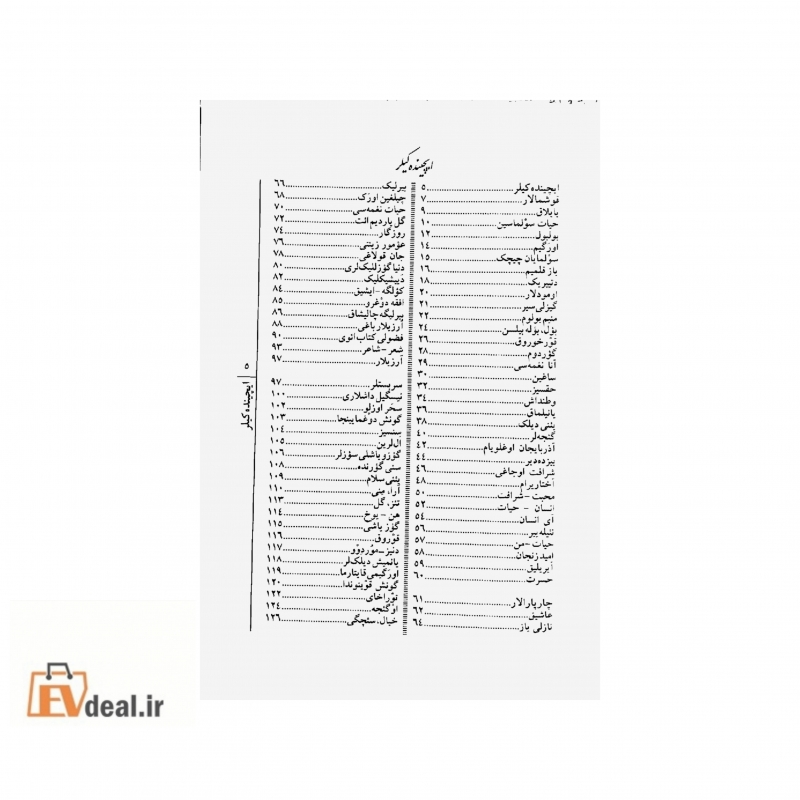 ایچینده کیلر
ایچینده کیلر...۵
قوشمالار...۷
یایلاق...۹
حیات سوْلماسین...۱۰
بولبول...۱۲
اورگیم...۱۴
سوْلمایان چیچک...۱۵
یاز قلمیم...۱۶
دئییریک...۱۸
اومودلار...۲۰
گیزلی سیر...۲۱
منیم یولوم...۲۲
یوْل، یوْله بیلسن...۲۴
قوْرخوروق...۲۶
گؤردوم...۲۸
آنا نغمه‌سی...۲۹
ساغین...۳۰
حقسیز...۳۲
وطنداش...۳۴
یانیلماق...۳۶
یئنی دیلک...۳۸
گئجه‌لر...۴۰
آذربایجان اوغلویام...۴۲
بیزده‌دیر...۴۴
شرافت اوجاغی...۴۶
آختاریرام...۴۸
محبت-شرافت...۵۰
انسان - حیات...۵۲
ای انسان...۵۴
ننیله‌ییر...۵۶
حیات-من...۵۷
امید زنجان...۵۸
آیریلیق...۵۹
حسرت...۶۰
چارپارالار...۶۱
عاشیق...۶۲
نازلی یاز...۶۴
بیرلیک...۶۶
چیلغین اورک...۶۸
حیات نغمه‌سی...۷۰
گل یاردیم ائت...۷۲
روزگار...۷۴
عؤمور زینتی...۷۶
جان قولاغی...۷۸
دنیا گؤزللیک‌لری...۸۰
دییشیکلیک...۸۲
کؤلگه-ایشیق...۸۴
افقه دوْغرو...۸۵
بیرلیگه چالیشاق...۸۶
آرزیلار باغی...۸۸
فضولی کتاب ائوی...۹۰
شعر-شاعر...۹۳
آرزیلار...۹۷
سربستلر...۹۷
نیسگیل داشلاری...۱۰۰
سحر اوزلو...۱۰۲
گونش دوْغمایینجا...۱۰۳
سنسیز...۱۰۴
ال‌لرین...۱۰۵
گؤزو یاشلی سؤزلر...۱۰۶
سنی گؤرنده...۱۰۸
یئنی سلام...۱۰۹
آرا، منی...۱۱۰
تئز، گل...۱۱۳
هن - یوخ...۱۱۴
گؤز یاشی...۱۱۵
قوْروق...۱۱۶
دنیز-موْردوْو...۱۱۷
یانمیش دیلک‌لر...۱۱۸
اورگیمی قایتارما...۱۱۹
گونش قوْینوندا...۱۲۰
نوْراخای...۱۲۲
او گئجه...۱۲۴
خیال، سئچگی...۱۲۶
۵ | ایچینده کیلر
EVdeal.ir